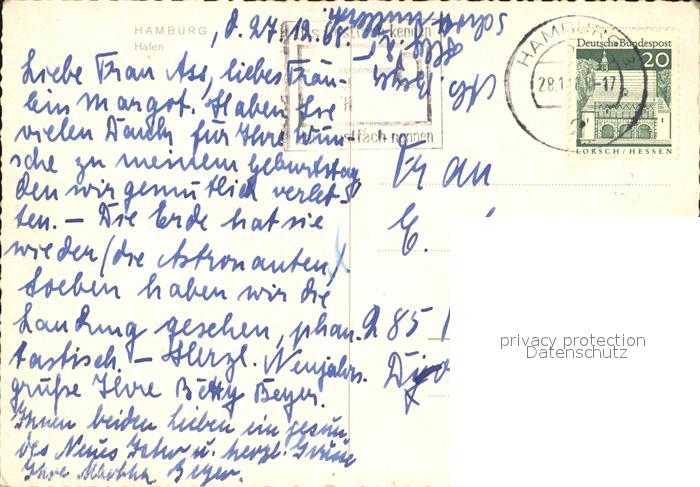 HAMBURG
Hafen
d. 27.12.68.
Liebe Frau Ass, liebes Fräu-
lein Margot. Haben Sie
vielen Dank für Ihre Wün-
sche zu meinem Geburtstag
den wir gemütlich verleb-
ten. – Die Erde hat sie
wieder (die Astronauten)
Soeben haben wir die
Landung gesehen, phan-
tastisch. – Herzl. Neujahrs-
grüße Ihre Betty Beyer.
Ihnen beiden lieben ein gesun-
des Neues Jahr u. herzl. Grüße
Ihre Beyer.
kennen
Postfach nennen
HAMBURG
28.1
-17
Deutsche Bundespost
20
LORSCH/HESSEN
Frau
E.
285
privacy protection
Datenschutz